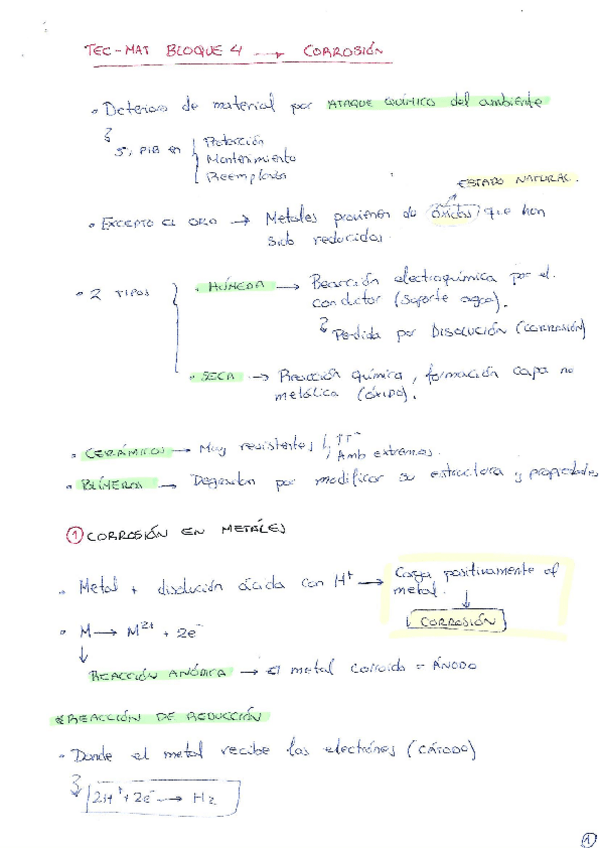 TEC-MAT BLOQUE 4 → CORROSIÓN
• Deterioro de material por ATAQUE QUÍMICO del ambiente
5% PIB en { Protección
Mantenimiento
Reemplazo
ESTADO NATURAL.
• EXCEPTO EL ORO → Metales provienen de óxidos que han
sido reducidos.
• 2 TIPOS
• HÚMEDA → Reacción electroquímica por el
conductor (Soporte agua).
Pérdida por DISOLUCIÓN (CORROSIÓN)
• SECA → Reacción química, formación capa no
metálica (óxido).
• CERÁMICOS → Muy resistentes ↑T
Amb extremos.
• POLÍMEROS → Degradan por modificar su estructura y propiedades
① CORROSIÓN EN METÁLES
• Metal + disolución ácida con H⁺ → Carga positivamente el
metal.
↓
CORROSIÓN
• M → M²⁺ + 2e⁻
↓
REACCIÓN ANÓDICA → el metal corroido = ÁNODO
REACCIÓN DE REDUCCIÓN
• Donde el metal recibe los electrónes (CÁTODO)
2H⁺ + 2e⁻ → H₂
1